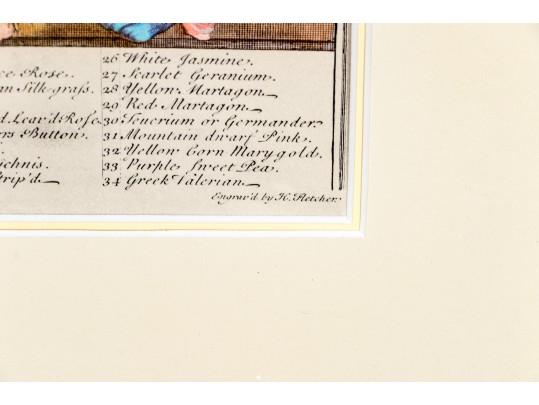 26 White Jasmine.
ce Rose. 27 Scarlet Geranium.
an Silk-grass. 28 Yellow Martagon
29 Red Martagon
d Leav'd Rose 30 Teucrium or Germander.
rs Button. 31 Mountain dwarf Pink.
32 Yellow Corn Marygold.
ichnis. 33 Purple Sweet Pea.
trip'd 34 Greek Valerian
Engrav'd by H. Fletcher.